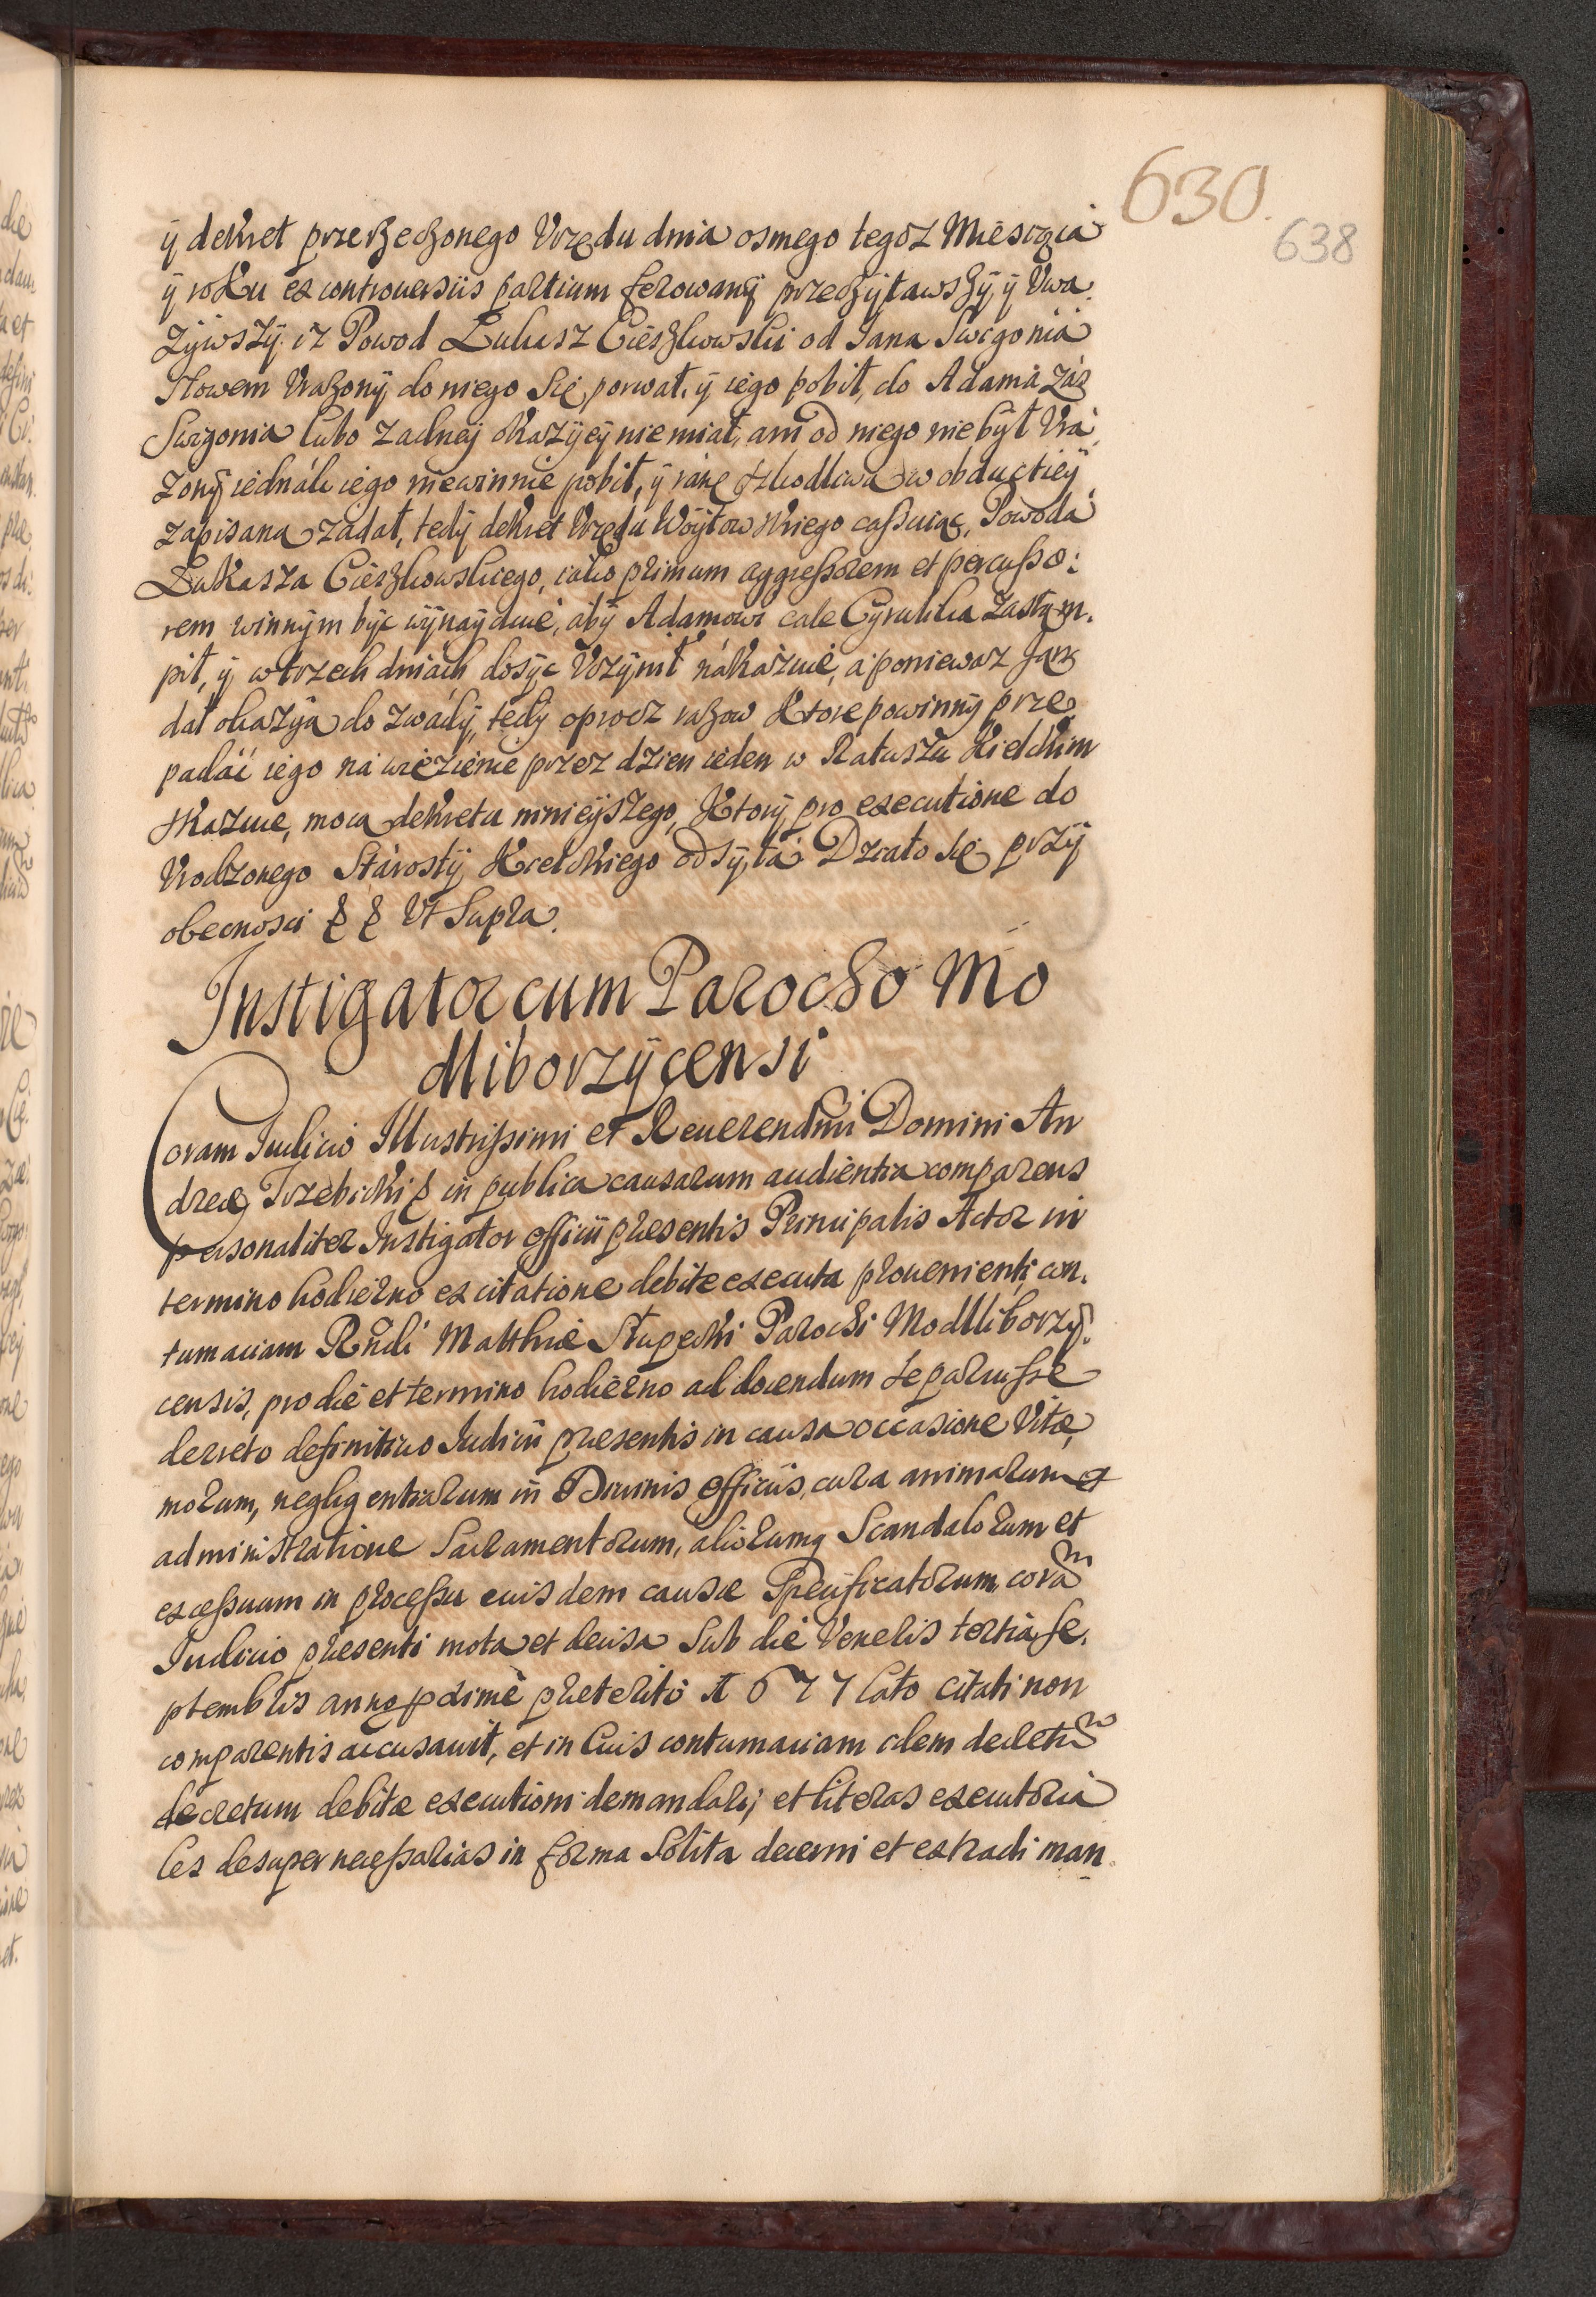 630.
638
ÿ dekret przerzeczonego Vrzędu dnia osmego tegoż Miesiąca
ÿ roku ex controuersiis partium ferowanÿ przeczÿtawszÿ, ÿ Vwa
żÿwszÿ iż Powod Lukasz Cieszkowski od Jana Swigonia
słowem Vrażonÿ do niego się porwał, ÿ iego pobił, do Adama zás
Swigonia lubo żadneÿ okazÿeÿ nie miał, ani od niego nie bÿł Vra
żonÿ iednák iego niewinnie pobił, ÿ ránę szkodliwą w obductieÿ
zapisaną zadał, tedÿ dekret Vrzędu Woÿtowskiego cassuiąc, Powodá
Lukasza Cieszkowskiego, iako primum aggressorem et percusso:
rem winnÿm bÿc wÿnaÿduie, abÿ Adamowi cale Cÿrulika zastąm.
pił, ÿ w trzech dniách dosÿc Vczÿnił nákazuie, á ponieważ Jan
dał okazÿą do zwádÿ, tedÿ oprocz razow ktore powinnÿ prze
padáć iego ná więzienie przez dzien ieden w Ratuszu Kielckim
skazuie, mocą dekretu ninieÿszego, Ktorÿ pro executione do
Vrodzonego Stárostÿ Kielckiego odsÿłá Działo się przÿ
obecnosci & & Vt Supra.
Instigator cum Parocho Mo
dliborzÿcensi
Coram Iudicio Illustrissimi et Reuerendmi Domini An
dreæ Trzebicki & in publica causarum audientia comparens
personaliter Instigator officii præsentis Principalis Actor in
termino hodierno ex citatione debite executa proueniente, con.
tumaciam Rndi Matthiæ Słupecki Parochi Modliborzÿ.
censis, pro die et termino hodierno ad docendum se paruisse
decreto definitiuo Iudicii præsentis in causa occasione Vitæ,
morum, negligentiarum in Diuinis officiis, cura animarum et
administratione Sacramentorum, aliorumq Scandalorum et
excessuum in processu eiusdem causæ Specificatorum, coram
Iudicio præsenti mota et decisa Sub die Veneris tertia se.
ptembris anno pdime præterito 1677 lato citati non
comparentis accusauit, et in euis contumaciam idem decretum
decretum debitæ executioni demandari, et literas executoria
les desuper necessarias in forma solita decerni et extradi man